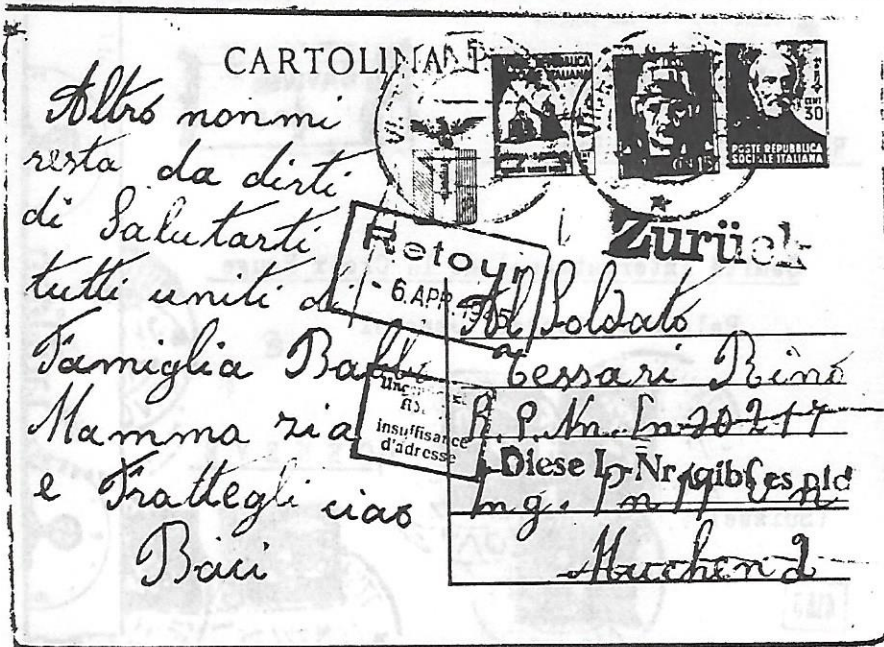 CARTOLINA P
REPUBBLICA
SOCIALE ITALIANA
CENT
30
POSTE REPUBBLICA
SOCIALE ITALIANA
Altro non mi
resta da dirti
di Salutarti
tutti uniti di
Famiglia Babbo
Mamma zia
e Frattegli ciao
Baci
Retour
- 6. APR. 1945
Zurück
insuffisance
d'adresse
Al Soldato
Tessari Rino
Ln 20217
Diese Ln-Nr. gibt es nic
München 2